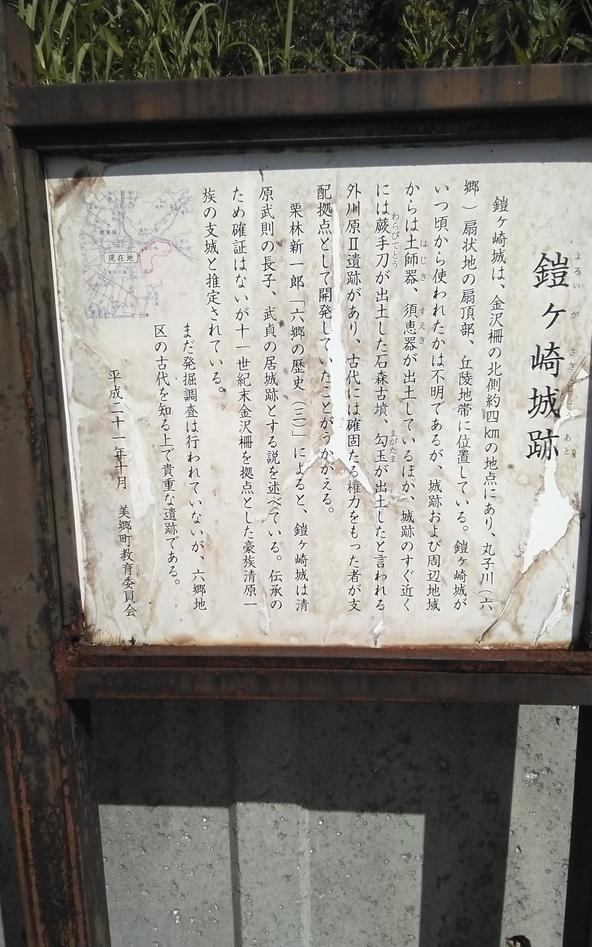 鎧ヶ崎城跡
よろいがさきじょうあと
鎧ヶ崎城は、金沢柵の北側約四㎞の地点にあり、丸子川（六
郷）扇状地の扇頂部、丘陵地帯に位置している。鎧ヶ崎城が
いつ頃から使われたかは不明であるが、城跡および周辺地域
からは土師器、須恵器が出土しているほか、城跡のすぐ近く
はじき
すえき
には蕨手刀が出土した石森古墳、勾玉が出土したと言われる
わらびてとう
まがたま
外川原Ⅱ遺跡があり、古代には確固たる権力をもった者が支
配拠点として開発していたことがうかがえる。
栗林新一郎「六郷の歴史（三）」によると、鎧ヶ崎城は清
原武則の長子、武貞の居城跡とする説を述べている。伝承の
ため確証はないが十一世紀末金沢柵を拠点とした豪族清原一
族の支城と推定されている。
まだ発掘調査は行われていないが、六郷地
区の古代を知る上で貴重な遺跡である。
平成二十一年十月　美郷町教育委員会
現在地